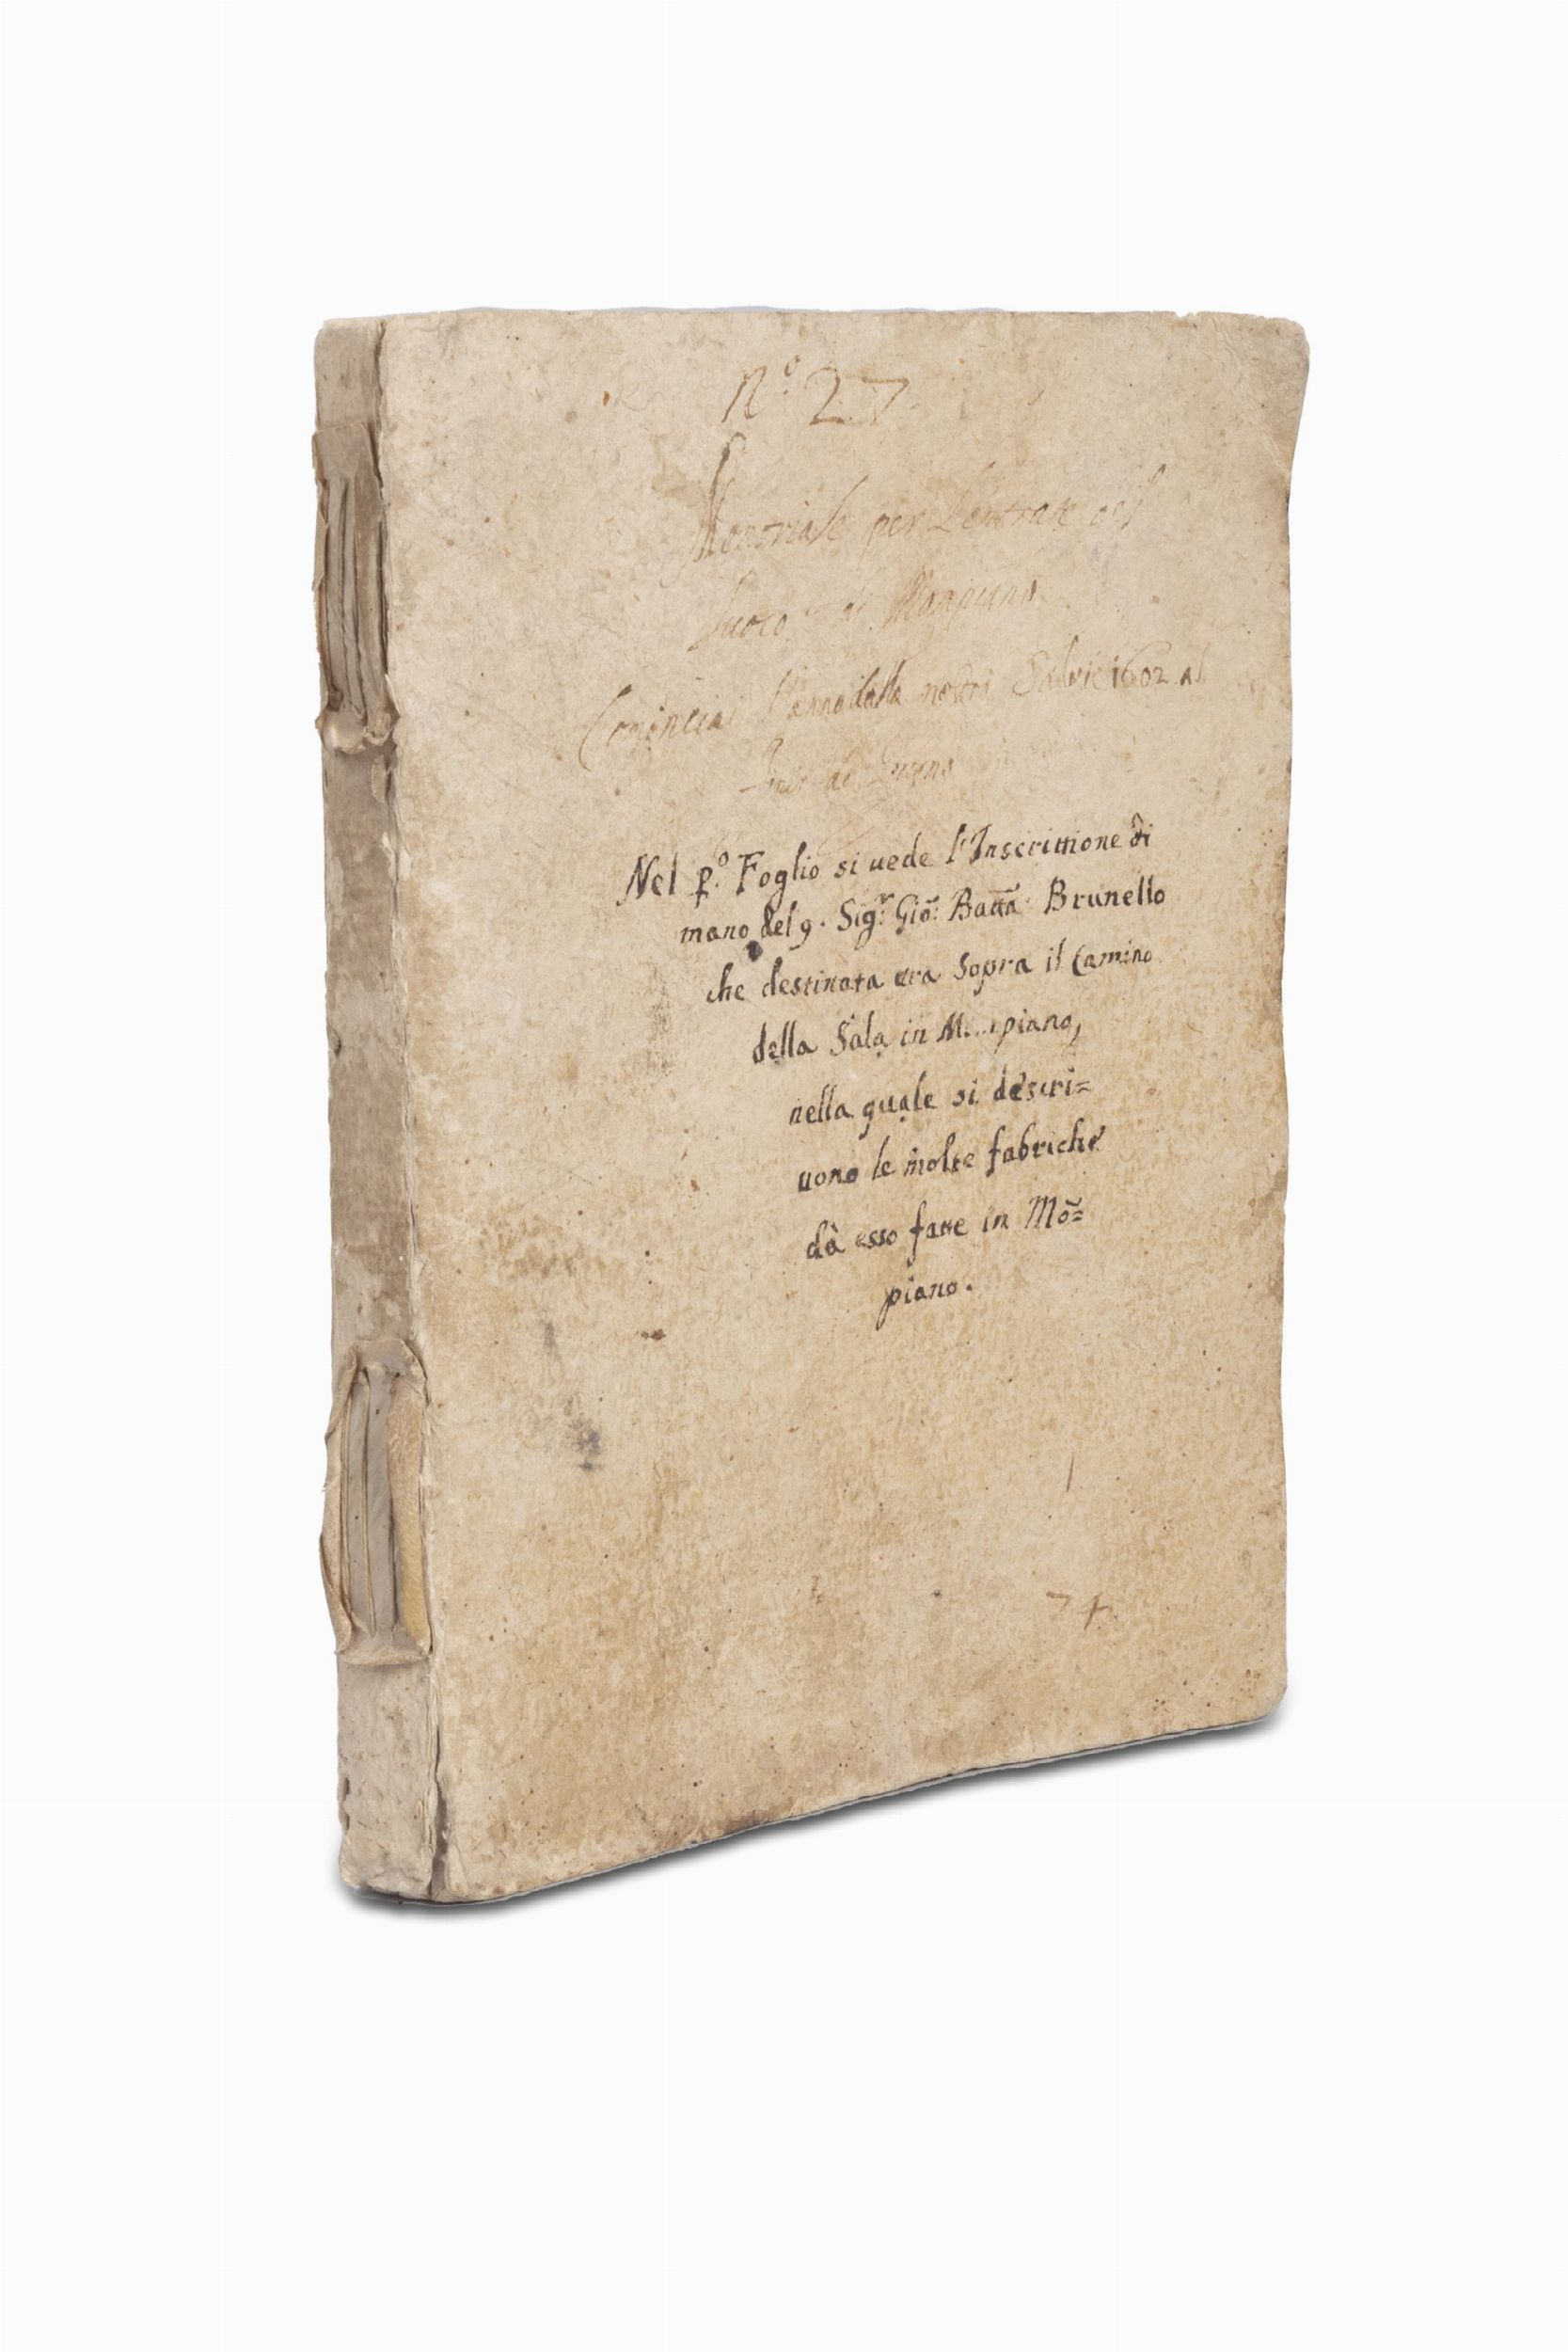 nº 27
per L'entrate del
luoco di
Comincia l'anno della nostra Salute 1602 al
di
Nel pº. Foglio si uede l'Inscrittione di
mano del q. Sigr. Giō: Batta Brunello
che destinata era Sopra il Camino
della Sala in M...piano,
nella quale si descri=
uono le molte fabriche
dà esso fatte in Mō=
piano.
74